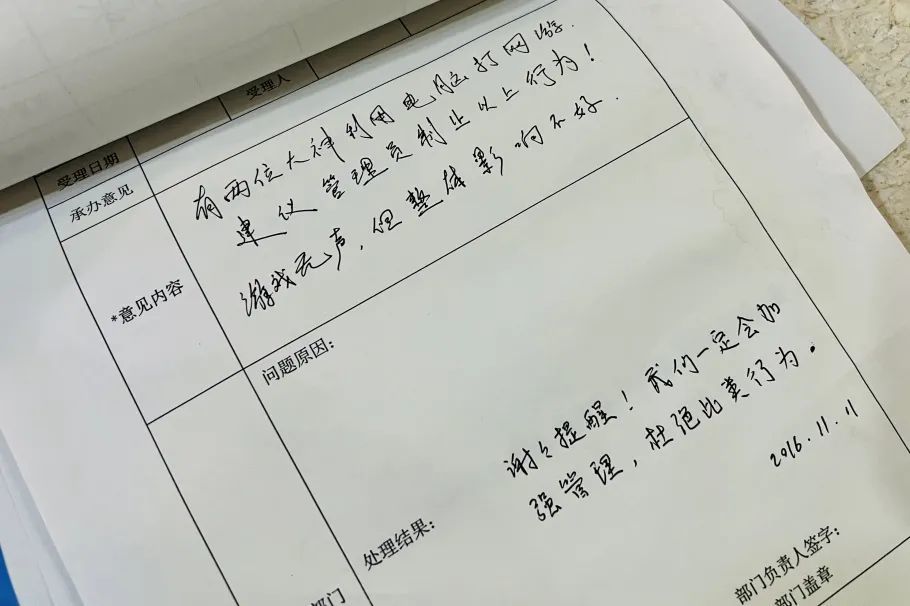 受理人
受理日期
承办意见
*意见内容
有两位大神利用电脑打网游.
建议管理员制止以上行为!
游戏无声,但整体影响不好.
问题原因:
谢々提醒!我们一定会加
强管理,杜绝比类行为。
2016.11.11
处理结果:
部门负责人签字:
部门盖章
部门